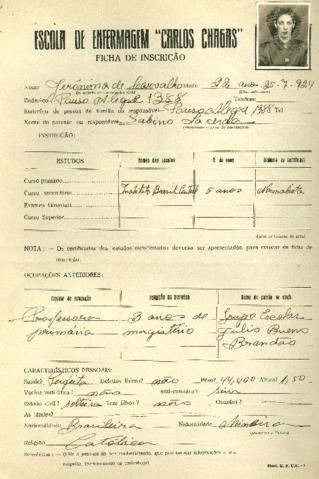 ESCOLA DE ENFERMAGEM "CARLOS CHAGAS"
FICHA DE INSCRIÇÃO
Nome Jerônima de Carvalho Idade 22 anos 25-7-924
Endereço Pouso Alegre 1358 Telefone
Endereço de pessoa de família ou responsável Pouso Alegre 1358 Tel.
Nome do parente ou responsável Sabino Lacerda
INSTRUÇÃO:
ESTUDOS Nomes das Escolas N. de anos Diploma ou Certificado
Curso primário
Curso secundário Instituto Brasil Central 5 anos Normalista
Exames
Curso Superior
NOTA: — Os certificados dos estudos mencionados deverão ser apresentados, para retirar de ficha de
inscrição.
OCUPAÇÕES ANTERIORES:
Professora 3 anos de Grupo Escolar
primária magistério Julio Bueno
Brandão
CARACTERÍSTICOS PESSOAIS:
Saúde? Perfeita Defeitos físicos? não Peso? 44,400 Altura? 1,50
não sim
Estado civil? solteira Tem filhos? não Quantos?
As idades?
Nacionalidade Brasileira Naturalidade Mineira
Religião Católica